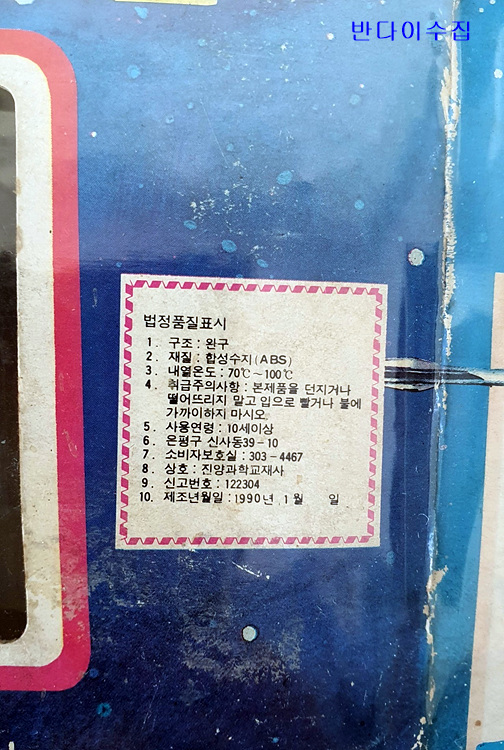 반다이수집
법정품질표시
1. 구조 : 완구
2. 재질 : 합성수지(ABS)
3. 내열온도 : 70℃~100℃
4. 취급주의사항 : 본제품을 던지거나
떨어뜨리지 말고 입으로 빨거나 불에
가까이하지 마시오.
5. 사용연령 : 10세이상
6. 은평구 신사동39-10
7. 소비자보호실 : 303-4467
8. 상호 : 진양과학교재사
9. 신고번호 : 122304
10. 제조년월일 : 1990년 . 1월 일